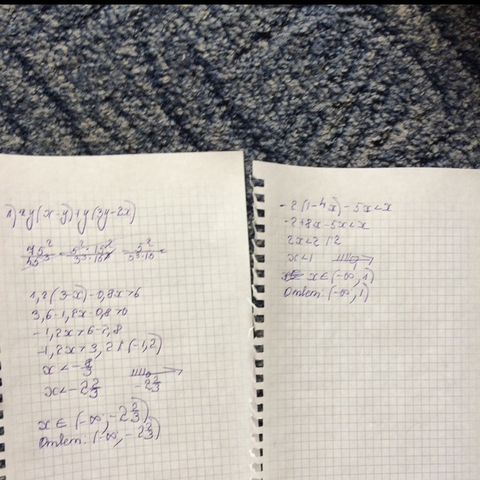 1) xy(x-y)+y(3y-2x)
1,2(3-x)-0,8x>6
3,6-1,2x-0,8>6
-1,2x>6-2,8
-1,2x>3,2 |:(-1,2)
x<-8/3
x<-2 2/3
-2 2/3
x∈(-∞,-2 2/3)
Ответ: (-∞,-2 2/3)
-2(1-4x)-5x<x
-2+8x-5x<x
2x<2 |:2
x<1
x∈(-∞,1)
Ответ: (-∞,1)